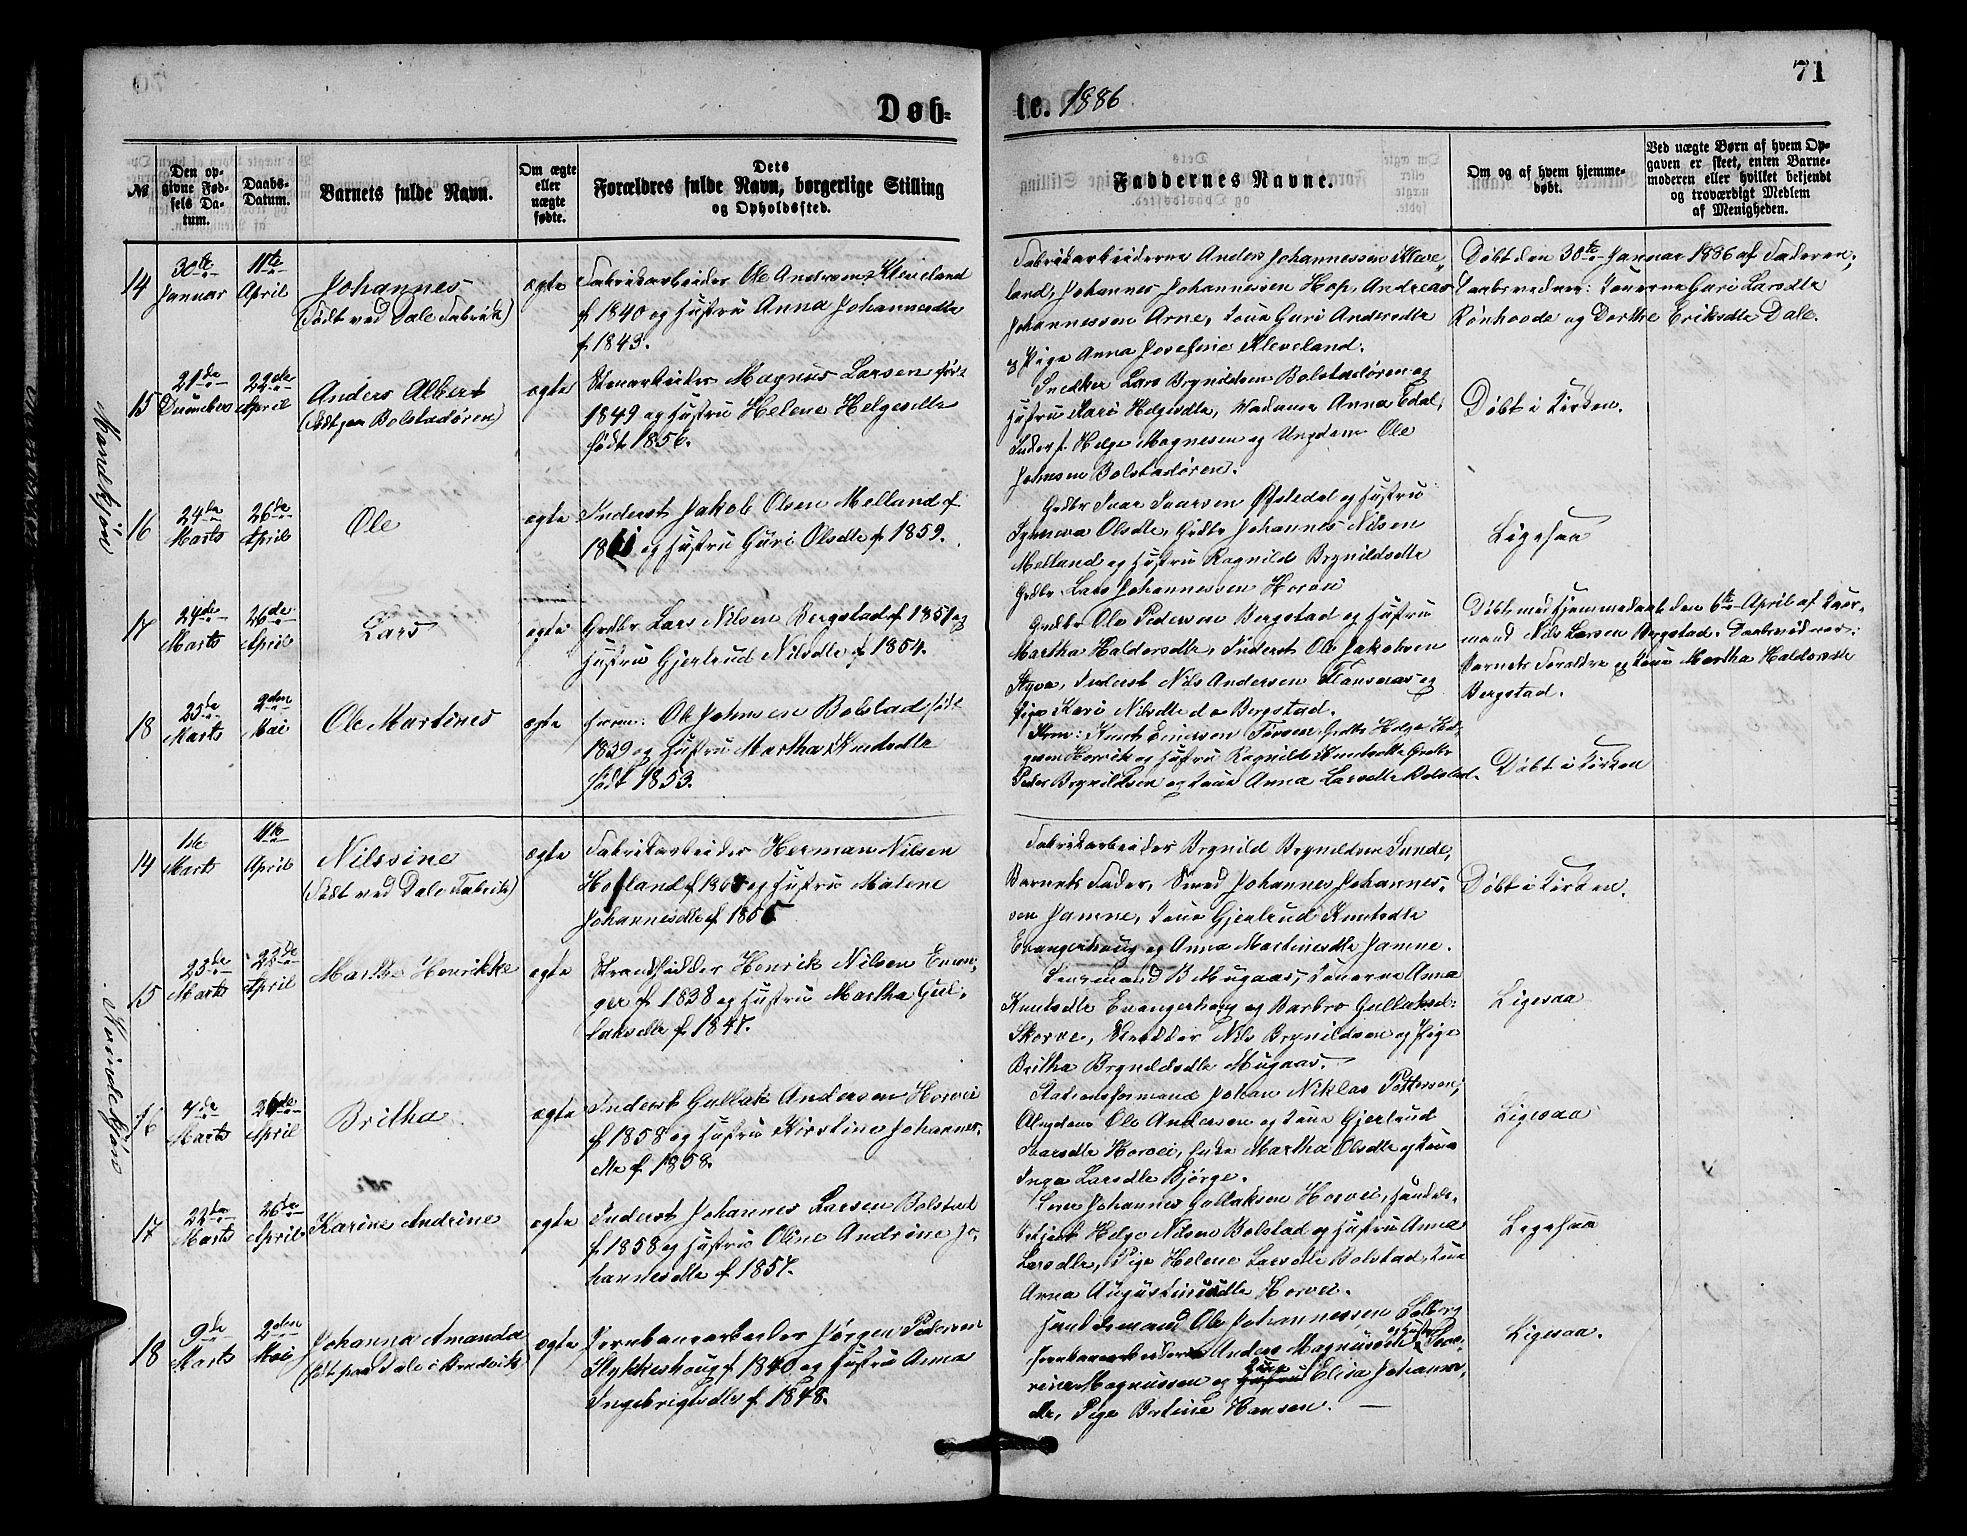 71
Døb-
te. 1886
№
Den op-
givne Fød-
sels Da-
tum.
Daabs-
Datum.
Barnets fulde Navn.
Om ægte
eller
uægte
fødte.
Dets
Forældres fulde Navn, borgerlige Stilling
og Opholdssted.
Faddernes Navne.
Om og af hvem hjemme-
døbt.
Ved uægte Børn af hvem Op-
gaven er skeet, enten Barne-
moderen eller hvilket bekjendt
og troværdigt Medlem
af Menigheden.
Mandkjøn
14
30te
Januar
11te
April
Johannes
(Født ved Dale Fabrik)
ægte
Fabrikarbeider Ole Andersen Kleveland
f 1840 og Hustru Anna Johannesdtr
f. 1843.
Fabrikarbeiderne Anders Johannessen Kleve-
land, Johannes Johannessen Hop, Andreas
Johannessen Arne, Kone Guri Andersdtr
og Pige Anna Josefine Kleveland.
Døbt den 30te Januar 1886 af Faderen;
Daabsvidner: Konerne Guri Larsdtr
Rønhovde og Dorthe Eriksdtr Dale.
15
21de
December
22de
April
Anders Albert
(Født paa Bolstadøren)
ægte
Stenarbeider Magnus Larsen født
1849 og Hustru Helene Helgesdtr
født 1856.
Snedker Lars Brynildsen Bolstadøren og
Hustru Kari Helgesdtr, Madame Anna Edal,
Inderst Helge Magnesen og Ungdom Ole
Johnsen Bolstadøren.
Døbt i Kirken.
16
24de
Marts
26de
April
Ole
ægte
Inderst Jakob Olsen Melland f.
1861 og Hustru Guri Olsdtr f. 1859.
Grdbr Ivar Ivarsen Øfstedal og Hustru
Synneva Olsdtr, Grdbr Johannes Nilsen
Melland og Hustru Ragnild Brynildsdtr
Grdbr. Lars Johannessen Horvei
Ligesaa
17
24de
Marts
26de
April
Lars
ægte
Grdbr Lars Nilsen Bergstad f 1851 og
Hustru Gjertrud Nilsdtr f 1854.
Grdbr Ole Pedersen Bergstad og Hustru
Martha Haldorsdtr, Inderst Ole Jakobsen
Styve, Inderst Nils Andersen Fansnæs og
Pige Kari Nilsdtr do Bergstad.
Døbt med Hjemmedaab den 6te April af Kaar-
mand Nils Larsen Bergstad. Daabsvidner:
Barnets Forældre og Kone Martha Haldorsdtr
Bergstad.
18
25de
Marts
2den
Mai
Ole Martines
ægte
Ole Johnsen Bolstad født
1839 og Hustru Martha Knutsdtr
født 1853.
Grdbr Helge Hel-
gesen Horveik og Hustru Ragnild Knutsdtr Grdbr
Peder Brynildsen og Kone Anna Larsdtr Bolstad.
Døbt i Kirken
Kvindekjøn
14
1ste
Marts
11te
April
Nilssine
(Født ved Dale Fabrik)
ægte
Fabrikarbeider Herman Nilsen
Hofland og Hustru Malene
Johannesdtr f 1856
Fabrikarbeider Brynild Brynildsen Sunde,
Barnets Fader, Smed Johannes Johannes-
sen Jamne, Kone Gjertrud Knutsdtr
Evangerhaug og Anna Martinesdtr Jamne.
Døbt i Kirken.
15
23de
Marts
22de
April
Marthe Henrikke
ægte
Strandsidder Henrik Nilsen Evan-
ger f. 1838 og Hustru Martha Gul-
laksdtr f. 1847.
B. Mugaas, Konerne Anna
Knutsdtr Evangerhaug og Barbro Gullaksd.
Skorve, Nils Brynildsen og Pige
Britha Brynildsdtr Mugaas.
Ligesaa
16
7de
Marts
26de
April
Britha
ægte
Inderst Gullak Andersen Horvei
f. 1858 og Hustru Kirstine Johannes-
dtr f. 1858.
Stationsformand Johan Niklas Pettersen,
Ungdom Ole Andersen og Kone Gjertrud
Ivarsdtr Horvei, Enke Martha Olsdtr og Kone
Inga Larsdtr Bjørge.
Ligesaa
17
22de
Marts
26de
April
Karine Andrine
ægte
Inderst Johannes Larsen Bolstad
f. 1858 og Hustru Oline Andrine Jo-
hannesdtr f. 1857.
Johannes Gullaksen Horvei, Handels-
betjent Helge Nilsen Bolstad og Hustru Anna
Larsdtr, Pige Helene Larsdtr Bolstad, Kone
Anna Augustinusdtr Horvei.
Ligesaa
18
9de
Marts
2den
Mai
Johanna Amanda
(født paa Dale i Bruvik)
ægte
Jernbanearbeider Jørgen Pedersen
Stykkeshaug f. 1840 og Hustru Anna
Ingebrigtsdtr f. 1848.
Handelsmand Ole Johannessen Solberg
Jernbanearbeider Anders Magnussen og Hustru
Magnussen og Kone Elisa Johannes-
dtr, Pige Bertine Hansen.
Ligesaa.